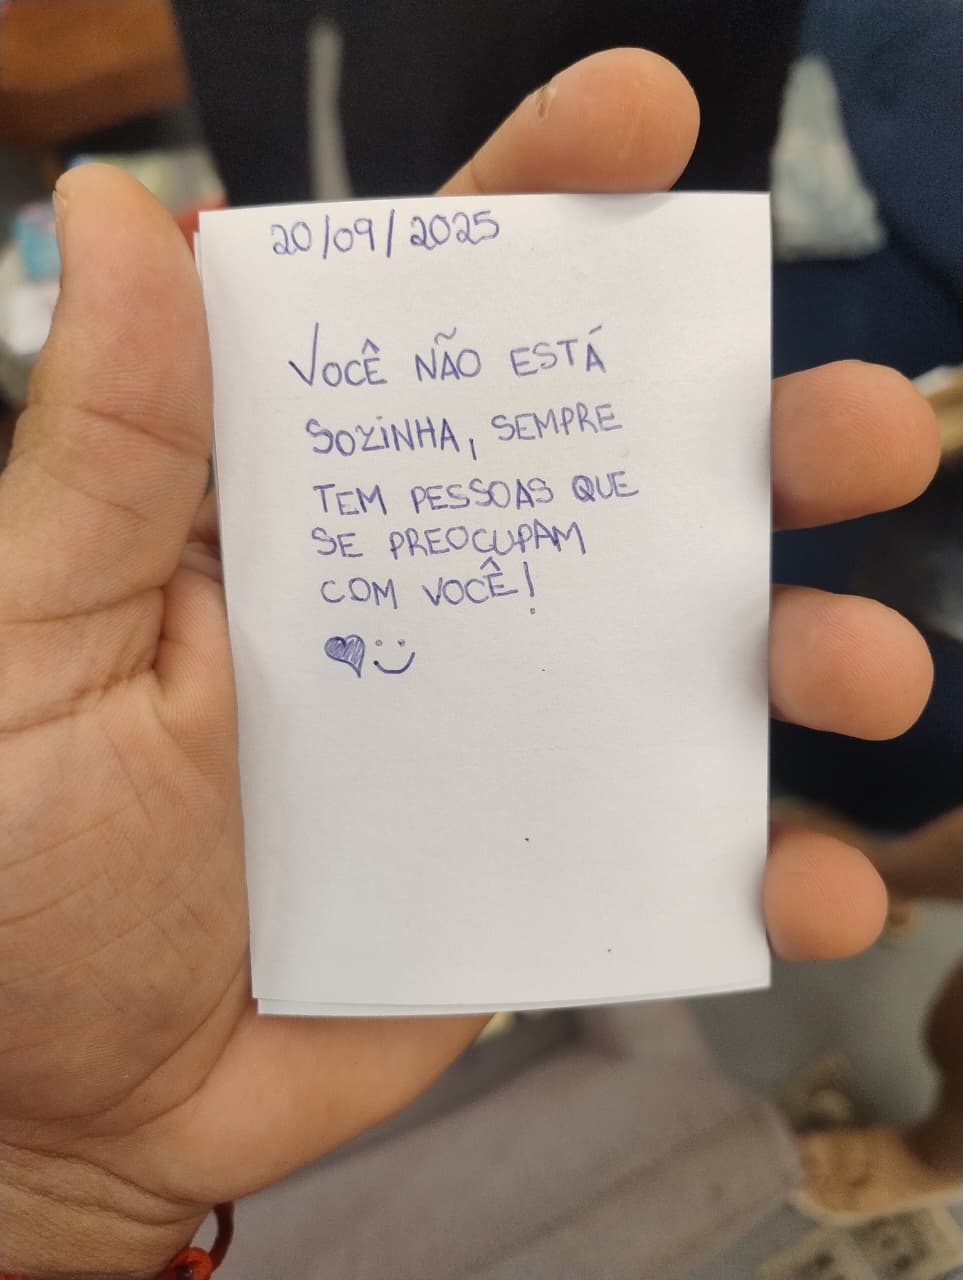 20/09/2025
VOCÊ NÃO ESTÁ
SOZINHA, SEMPRE
TEM PESSOAS QUE
SE PREOCUPAM
COM VOCÊ!
♥ :)